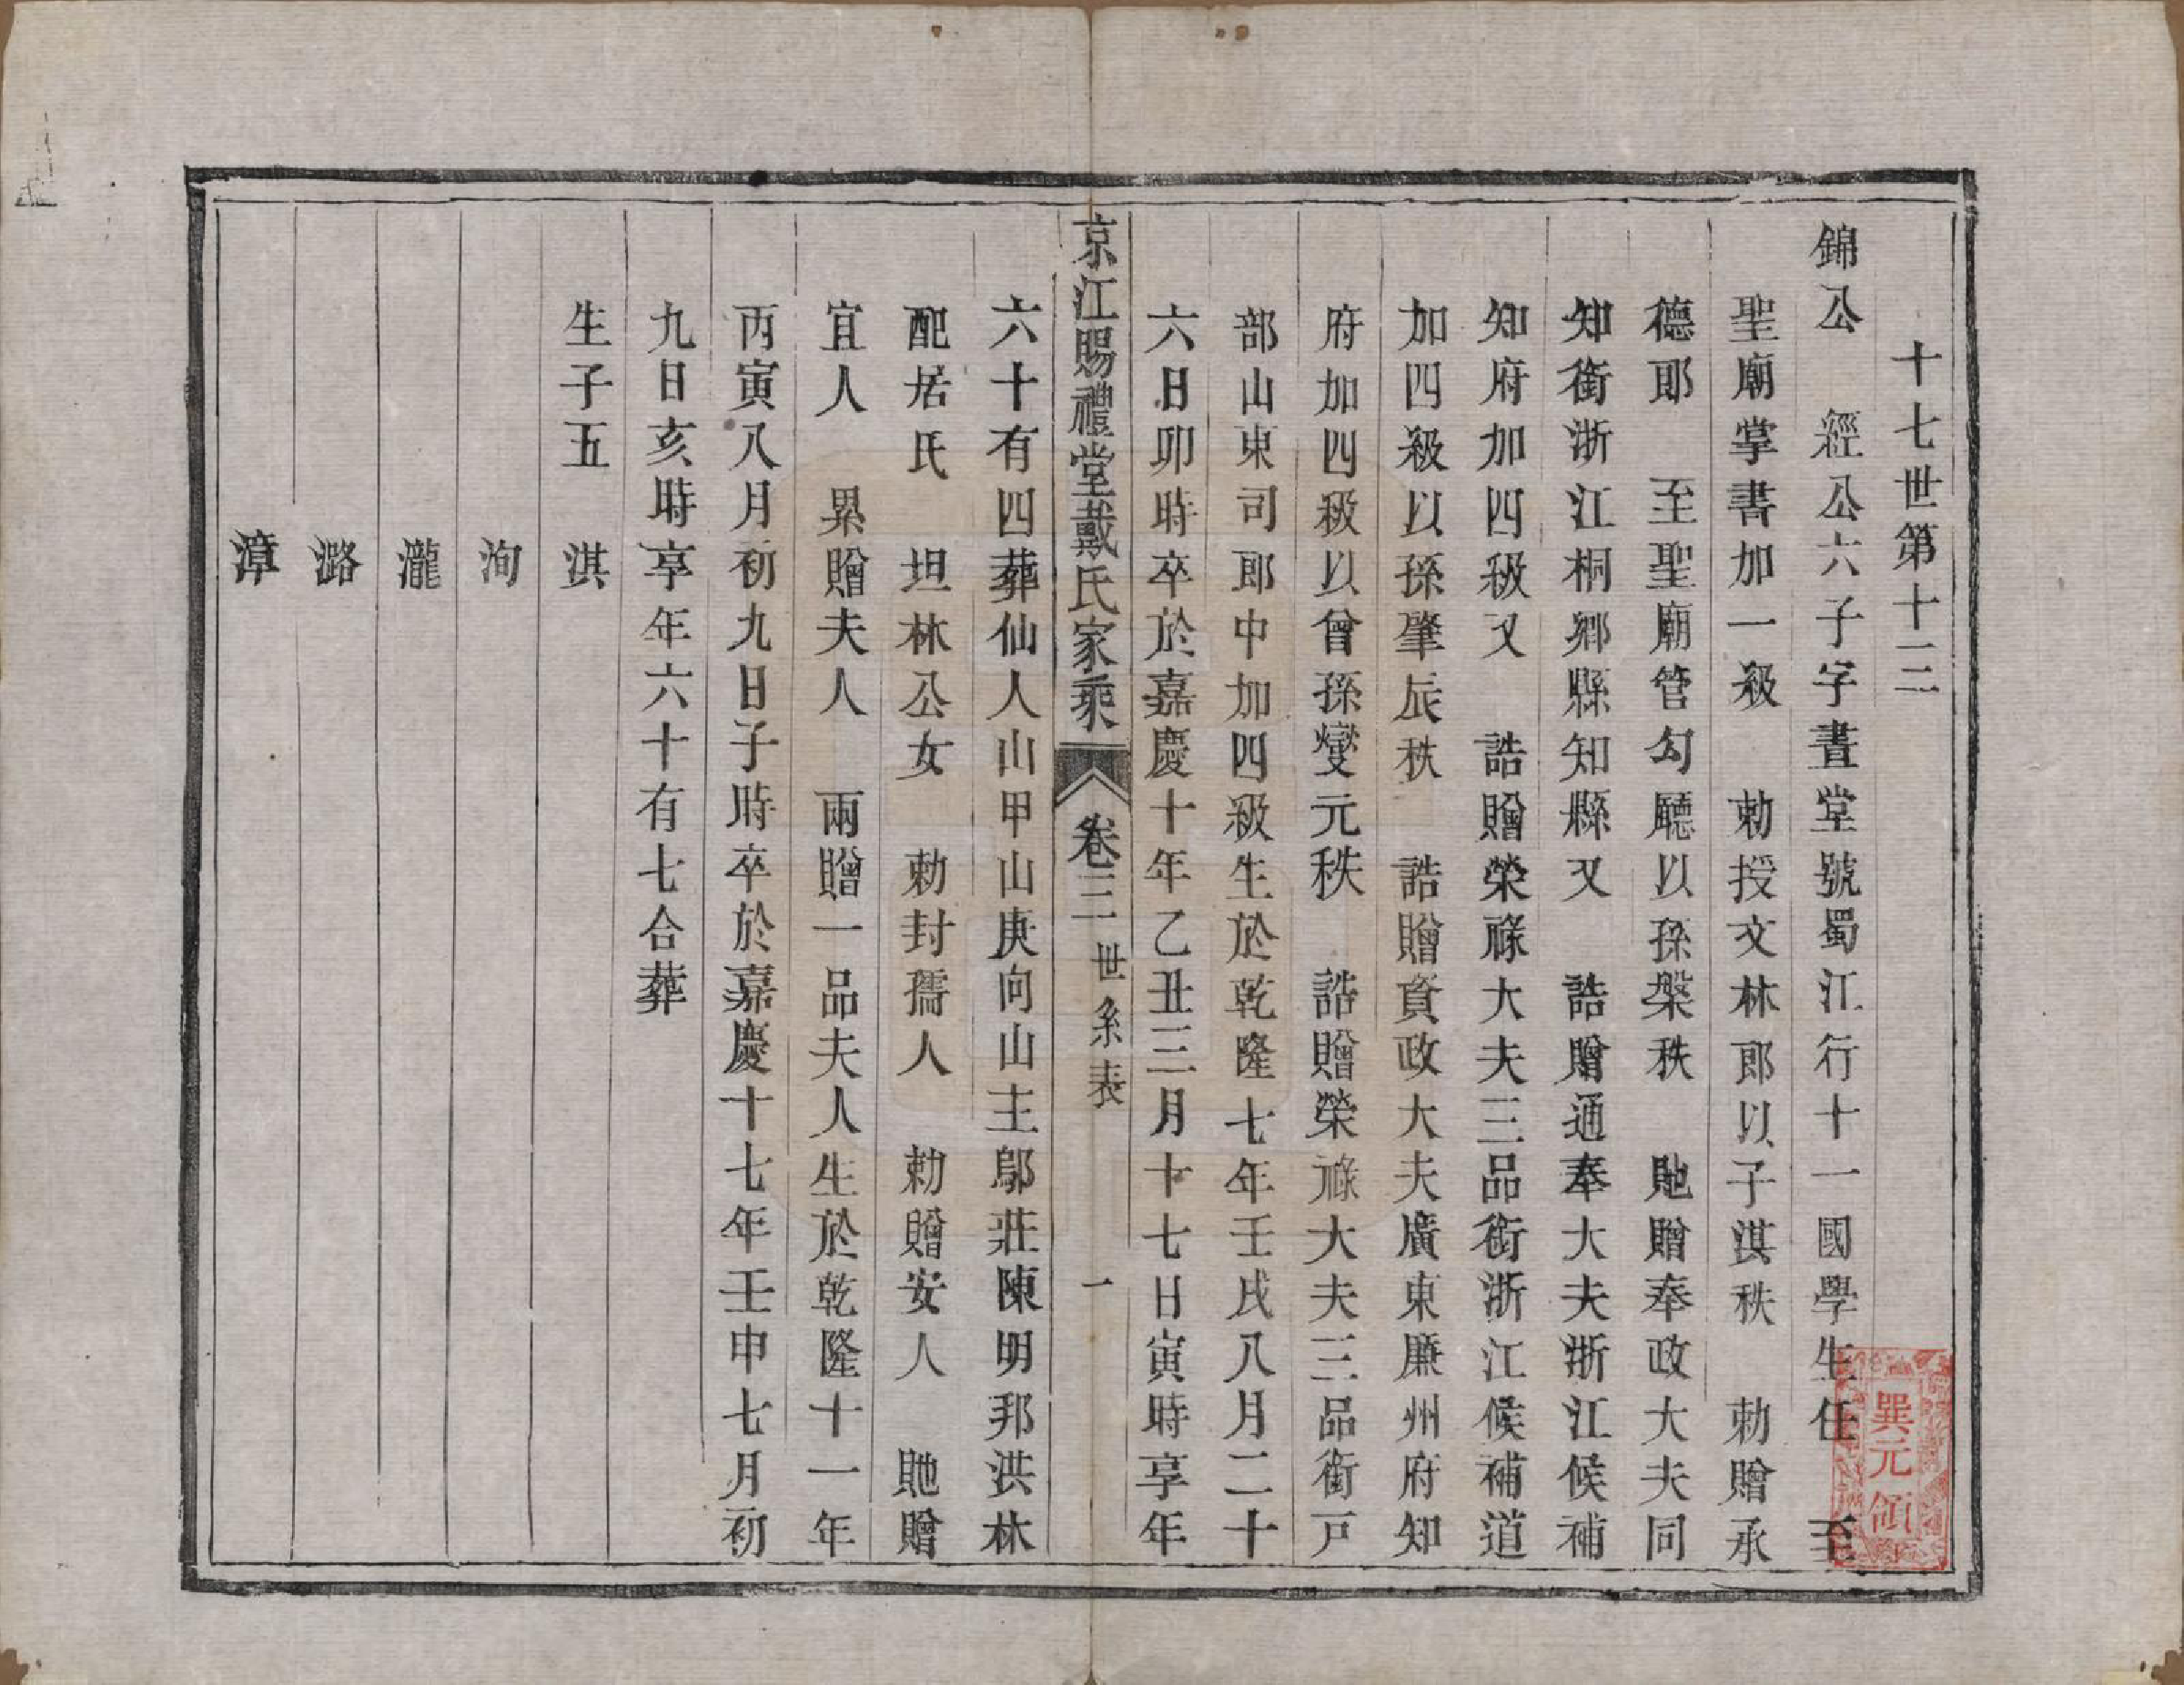 十七世第十三
錦公　經公六子字晝堂號蜀江行十一國學生任　至
聖廟掌書加一級　勅授文林郎以子淇秩　勅贈承
德郎　至聖廟管勾廳以孫槃秩　貤贈奉政大夫同
知銜浙江桐鄉縣知縣又　誥贈通奉大夫浙江候補
知府加四級又　誥贈榮祿大夫三品銜浙江候補道
加四級以孫肇辰秩　誥贈資政大夫廣東廉州府知
府加四級以曾孫燮元秩　誥贈榮祿大夫三品銜戸
部山東司郎中加四級生於乾隆七年壬戌八月二十
六日卯時卒於嘉慶十年乙丑三月十七日寅時享年
京江賜禮堂戴氏家乘　卷三　世系表　一
六十有四葬仙人山甲山庚向山主鄔莊陳明邦洪林
配居氏　坦林公女　勅封孺人　勅贈安人　貤贈
宜人　累贈夫人　兩贈一品夫人生於乾隆十一年
丙寅八月初九日子時卒於嘉慶十七年壬申七月初
九日亥時享年六十有七合葬
生子五　淇
洵
瀧
潞
漳
巽元領